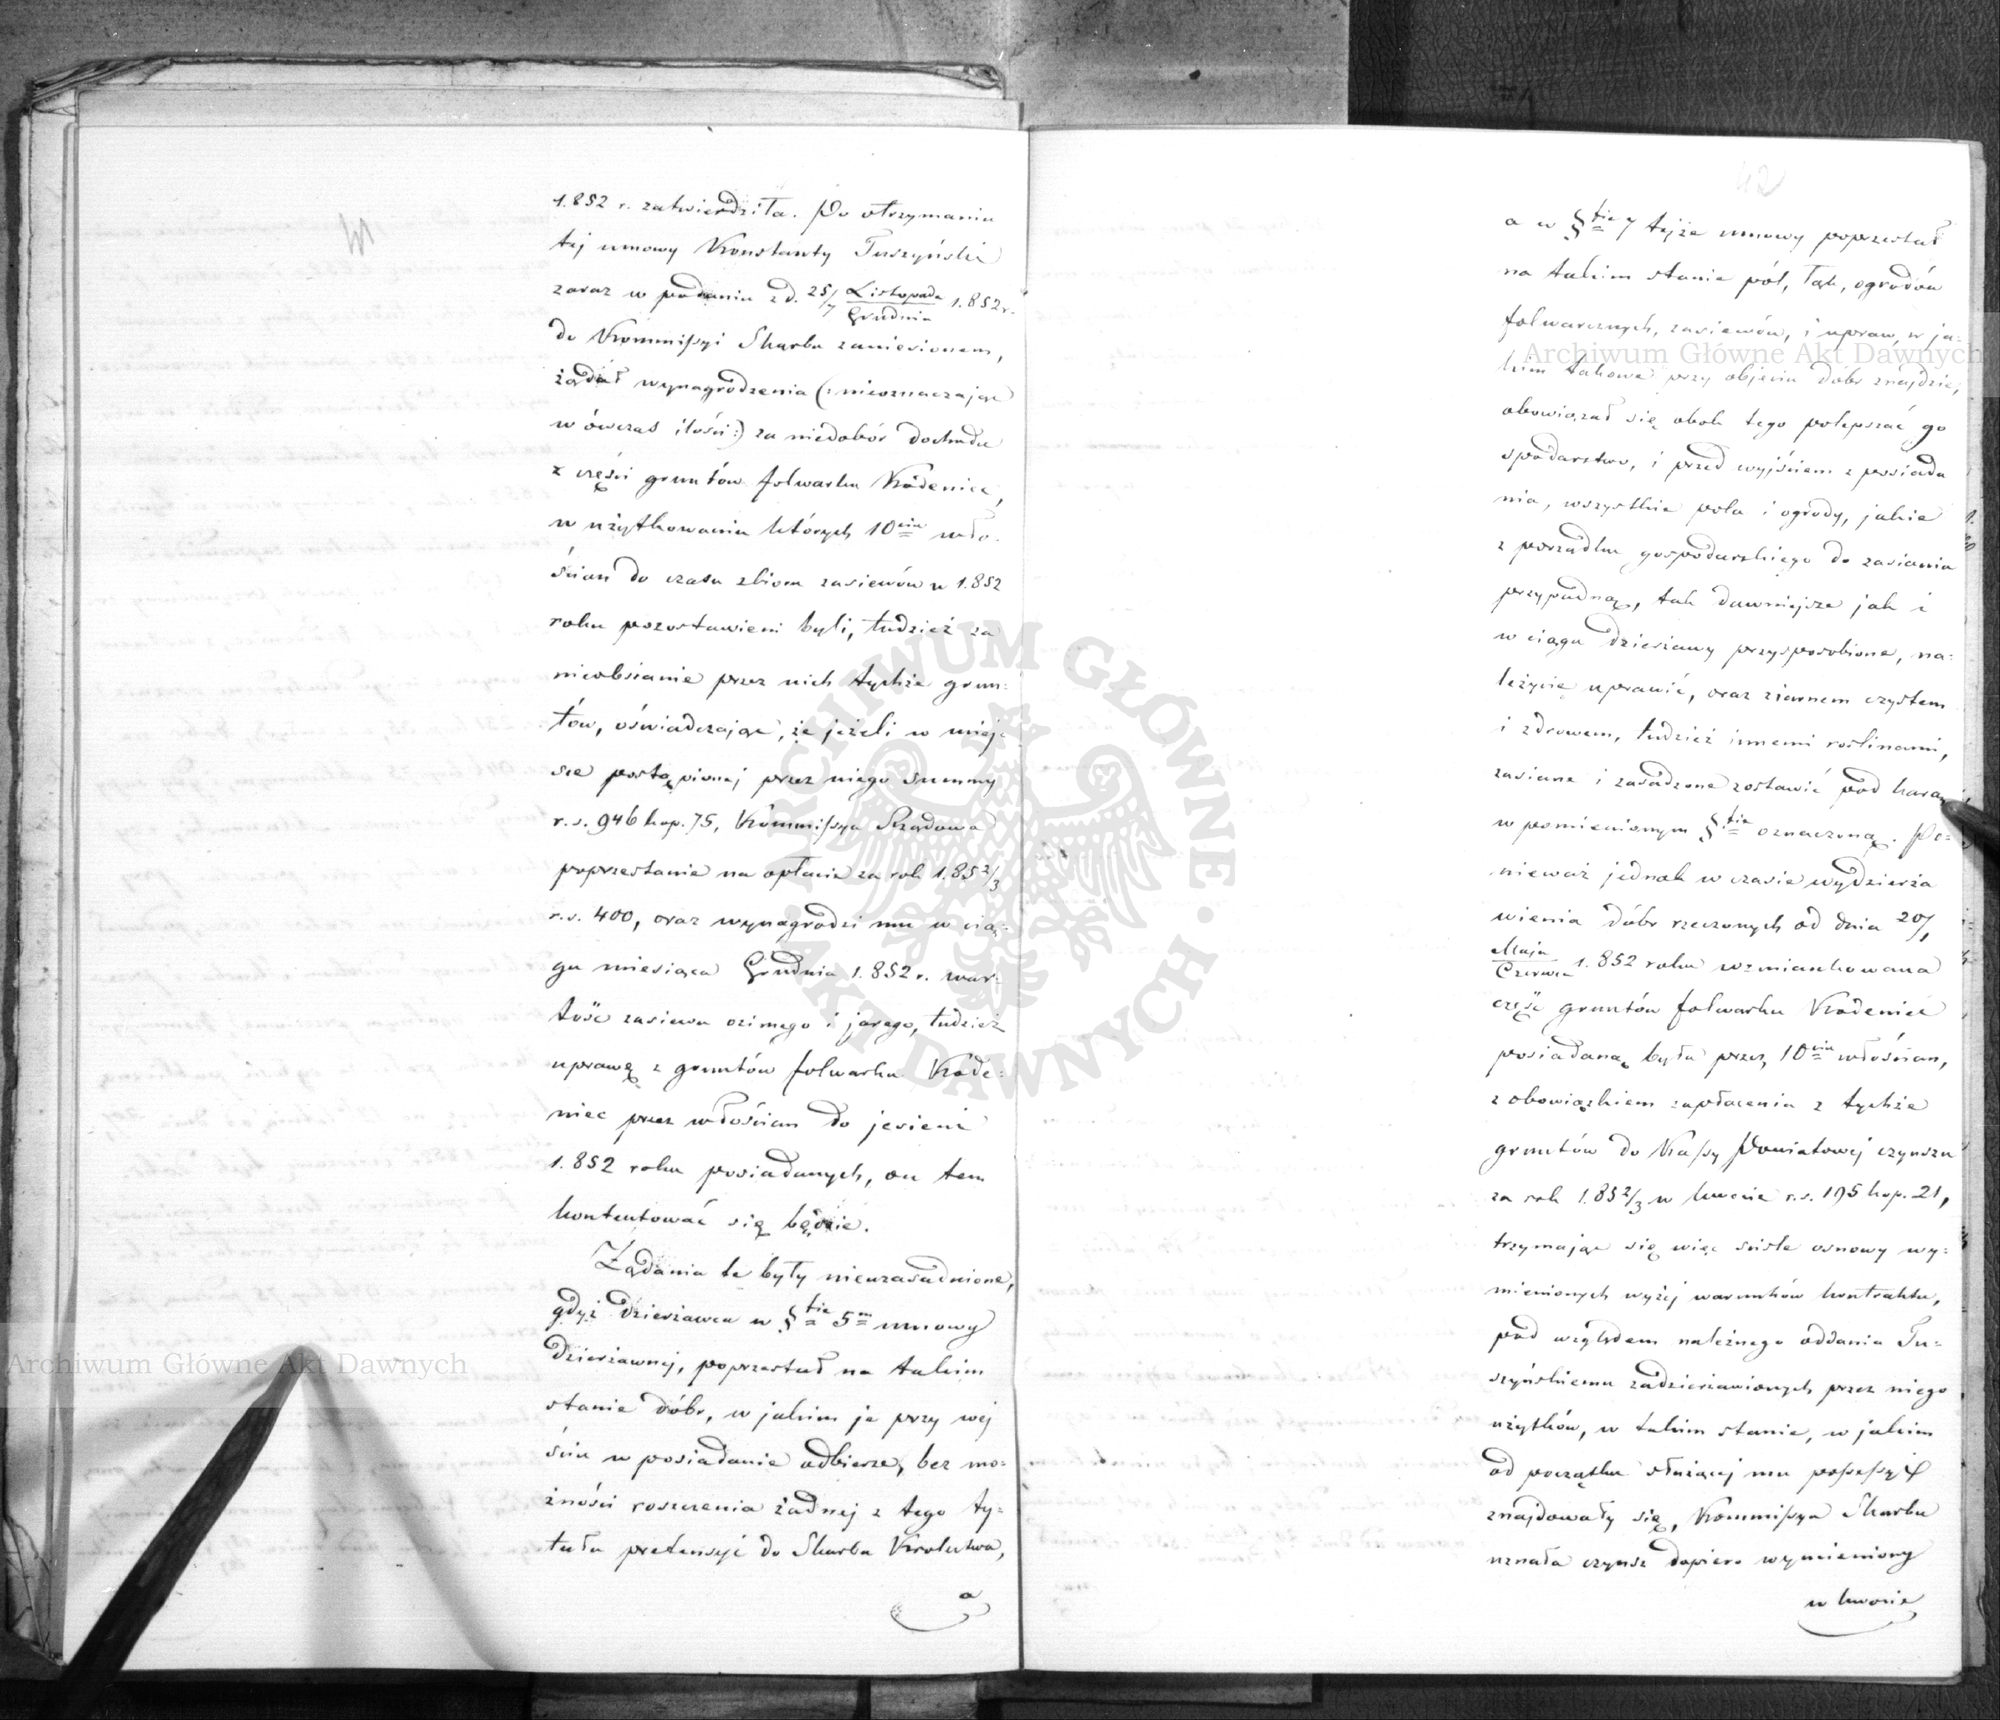 1.852 r. zatwierdziła. Po otrzymaniu
tej umowy Konstanty Tuszyński
zaraz w podaniu z d. 25/7 Listopada/Grudnia 1.852 r.
do Kommissyi Skarbu zaniesionem,
żądał wynagrodzenia (: nieoznaczając
w ówczas ilości :) za niedobór dochodu
z części gruntów folwarku Kodeniec,
w użytkowaniu których 10ciu wło-
ścian do czasu zbioru zasiewów w 1.852
roku pozostawieni byli, tudzież za
nieobsianie przez nich tychże grun-
tów, oświadczając, że jeżeli w miej-
sce postąpionej przez niego summy
r.s. 946 kop. 75, Kommissya Rządowa
poprzestanie na opłacie za rok 1.852/3
r.s. 400, oraz wynagrodzi mu w cią-
gu miesiąca Grudnia 1.852 r. war-
tość zasiewu ozimego i jarego, tudzież
uprawę z gruntów folwarku Kode-
niec przez włościan do jesieni
1.852 roku posiadanych, on tem
kontentować się będzie.
Żądania te były nieuzasadnione,
gdyż dzierżawca w §tie 5m umowy
dzierżawnej, poprzestał na takim
stanie dóbr, w jakim je przy wej
ściu w posiadanie odbierze, bez mo-
żności roszczenia żadnej z tego ty-
tułu pretensyi do Skarbu Królestwa,
a
42
a w §tie 7 tejże umowy poprzestał
na takim stanie pól, łąk, ogrodów
folwarcznych, zasiewów, i upraw, w ja-
kim takowe przy objęciu dóbr znajdzie,
obowiązał się obok tego polepszać go
spodarstwo, i przed wyjściem z posiada
nia, wszystkie pola i ogrody, jakie
z porządku gospodarskiego do zasiania
przypadną, tak dawniejsze jak i
w ciągu dzierżawy przysposobione, na-
leżycie uprawić, oraz ziarnem czystem
i zdrowem, tudzież innemi roślinami,
zasiane i zasadzone zostawić pod karą
w pomienionym §tie oznaczoną. Po-
nieważ jednak w czasie wydzierża
wienia dóbr rzeczonych od dnia 20/1
Maja/Czerwca 1.852 roku wzmiankowana
część gruntów folwarku Kodeniec
posiadaną była przez 10ciu włościan,
z obowiązkiem zapłacenia z tychże
gruntów do Kassy Powiatowej czynszu
za rok 1.852/3 w kwocie r.s. 195 kop. 21,
trzymając się więc ściśle osnowy wy-
mienionych wyżej warunków kontraktu,
pod względem należnego oddania Tu-
szyńskiemu zadzierżawionych przez niego
użytków, w takim stanie, w jakim
od początku służącej mu possessyi
znajdowały się, Kommissya Skarbu
uznała czynsz dopiero wymieniony
w kwocie
Archiwum Główne Akt Dawnych
Archiwum Główne Akt Dawnych
ARCHIWUM GŁÓWNE
AKT DAWNYCH